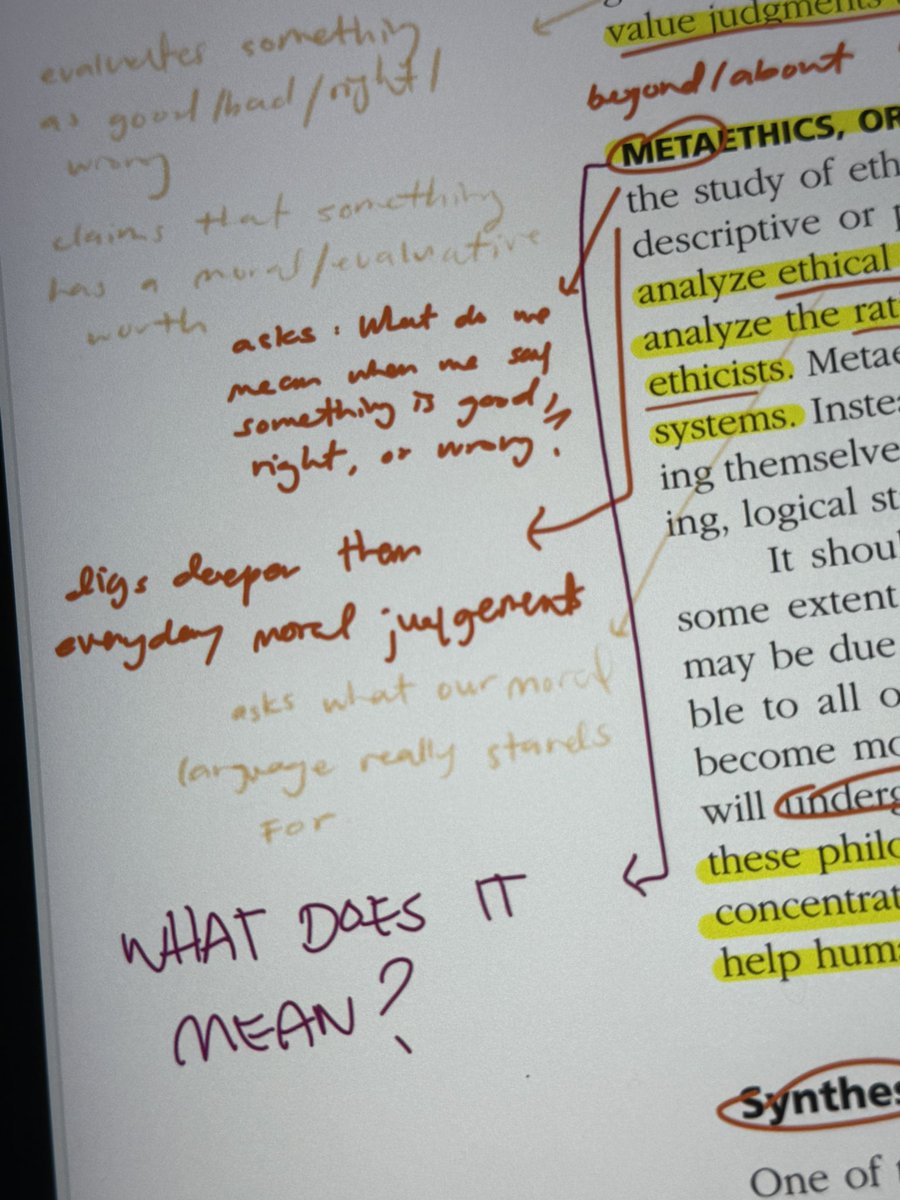 evaluates something
as good/bad/right/
wrong
claims that something
has a moral/evaluative
worth
asks: What do we
mean when we say
something is good,
right, or wrong?
digs deeper then
everyday moral judgements
asks what our moral
language really stands
For
WHAT DOES IT
MEAN?
value judgments
beyond/about
METAETHICS, OR
the study of eth
descriptive or p
analyze ethical
analyze the rat
ethicists. Metae
systems. Instea
ing themselve
ing, logical st
It shoul
some extent
may be due
ble to all o
become mo
will underg
these philo
concentrat
help huma
Synthes
One of t